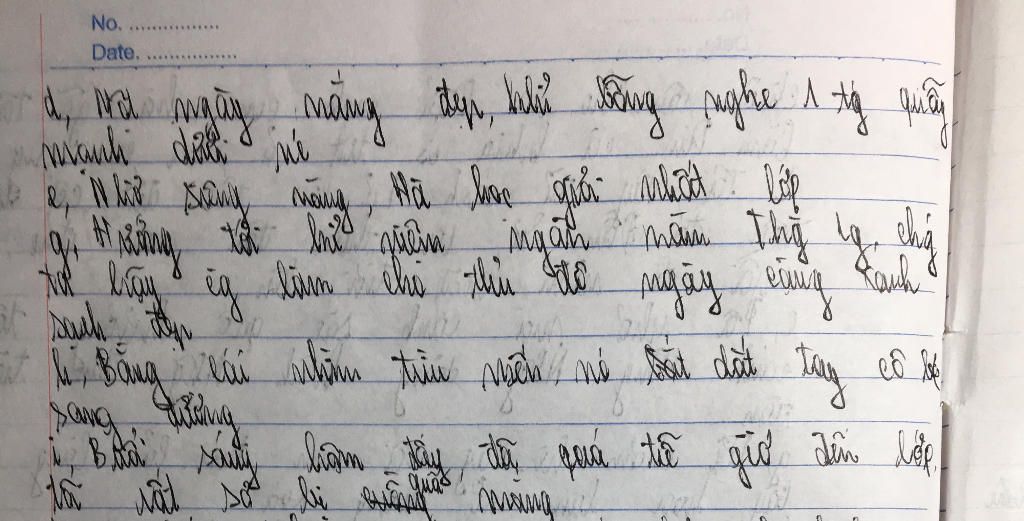 No. ................
Date. ................
d, Một ngày nắng đẹp, khỉ bỗng nghe 1 tg quẫy
mạnh dưới
e, Nhờ siêng năng, Hà học giỏi nhất lớp
g, Hướng tới kỉ niệm ngàn năm Thg Lg, chg
ta hãy cg làm cho thủ đô ngày càng xanh
sạch đẹp
h, Bằng cái nhìn trìu mến, nó dắt tay cô bé
sang đường
i, Buổi sáng hôm ấy, đã quá trễ giờ đến lớp,
tôi rất sợ bị quở mắng